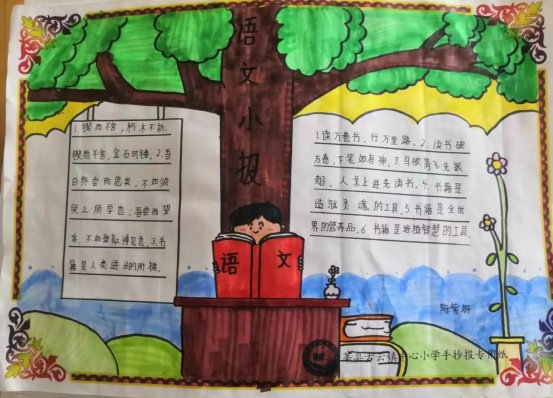 语文小报
1.锲而舍, 朽木不折,
锲而不舍, 金石可镂。2.吾
日终而思矣, 不如须
臾之所学也; 吾尝而望
矣, 不如登高博见也。3.书
籍是人类进步的阶梯。
1.读万卷书, 行万里路。2.读书破
万卷, 下笔如有神。3.鸟欲高飞先振
翅, 人求上进先读书。4.书籍是
造就灵魂的工具。5.书籍是全世
界的营养品。6.书籍是培植智慧的工具.
语文
陈紫妍
古云镇中心小学手抄报专用纸